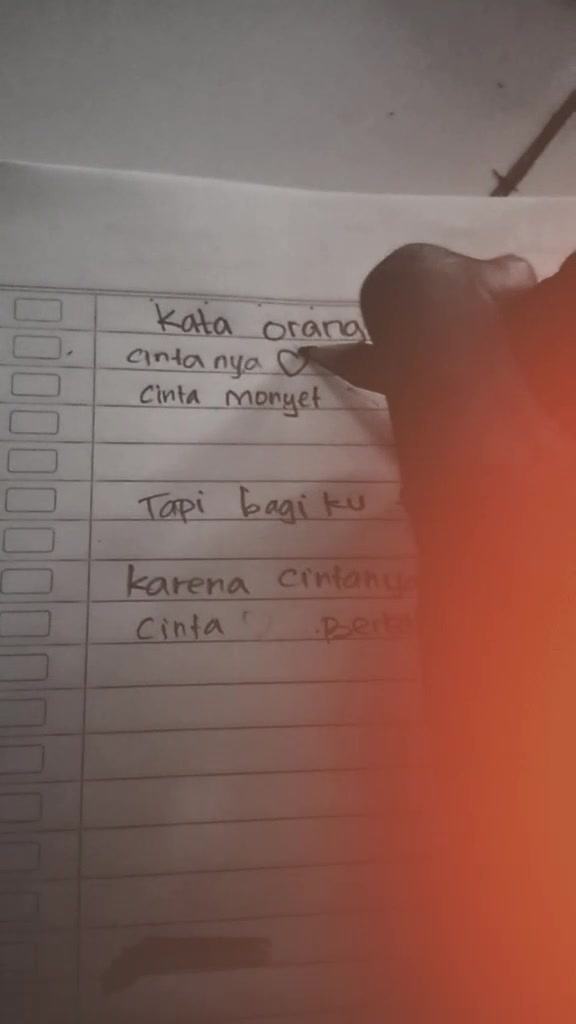 Kata orang
cintanya
cinta monyet
Tapi bagiku
karena cintanya
cinta